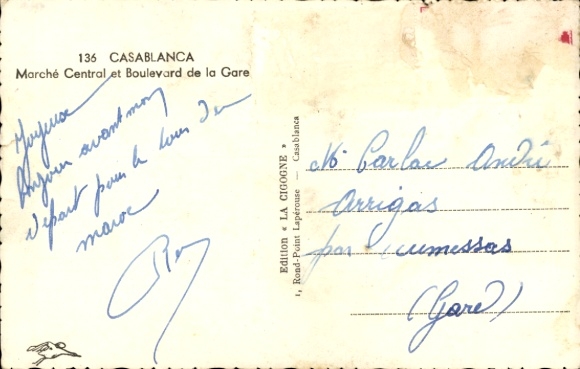 136 CASABLANCA
Marché Central et Boulevard de la Gare
Joyeux
avant mon
départ pour le tour du
maroc
Edition « LA CIGOGNE »
1, Rond-Point Lapérouse — Casablanca
Mr Carlac André
Arrigas
par
(Gard)